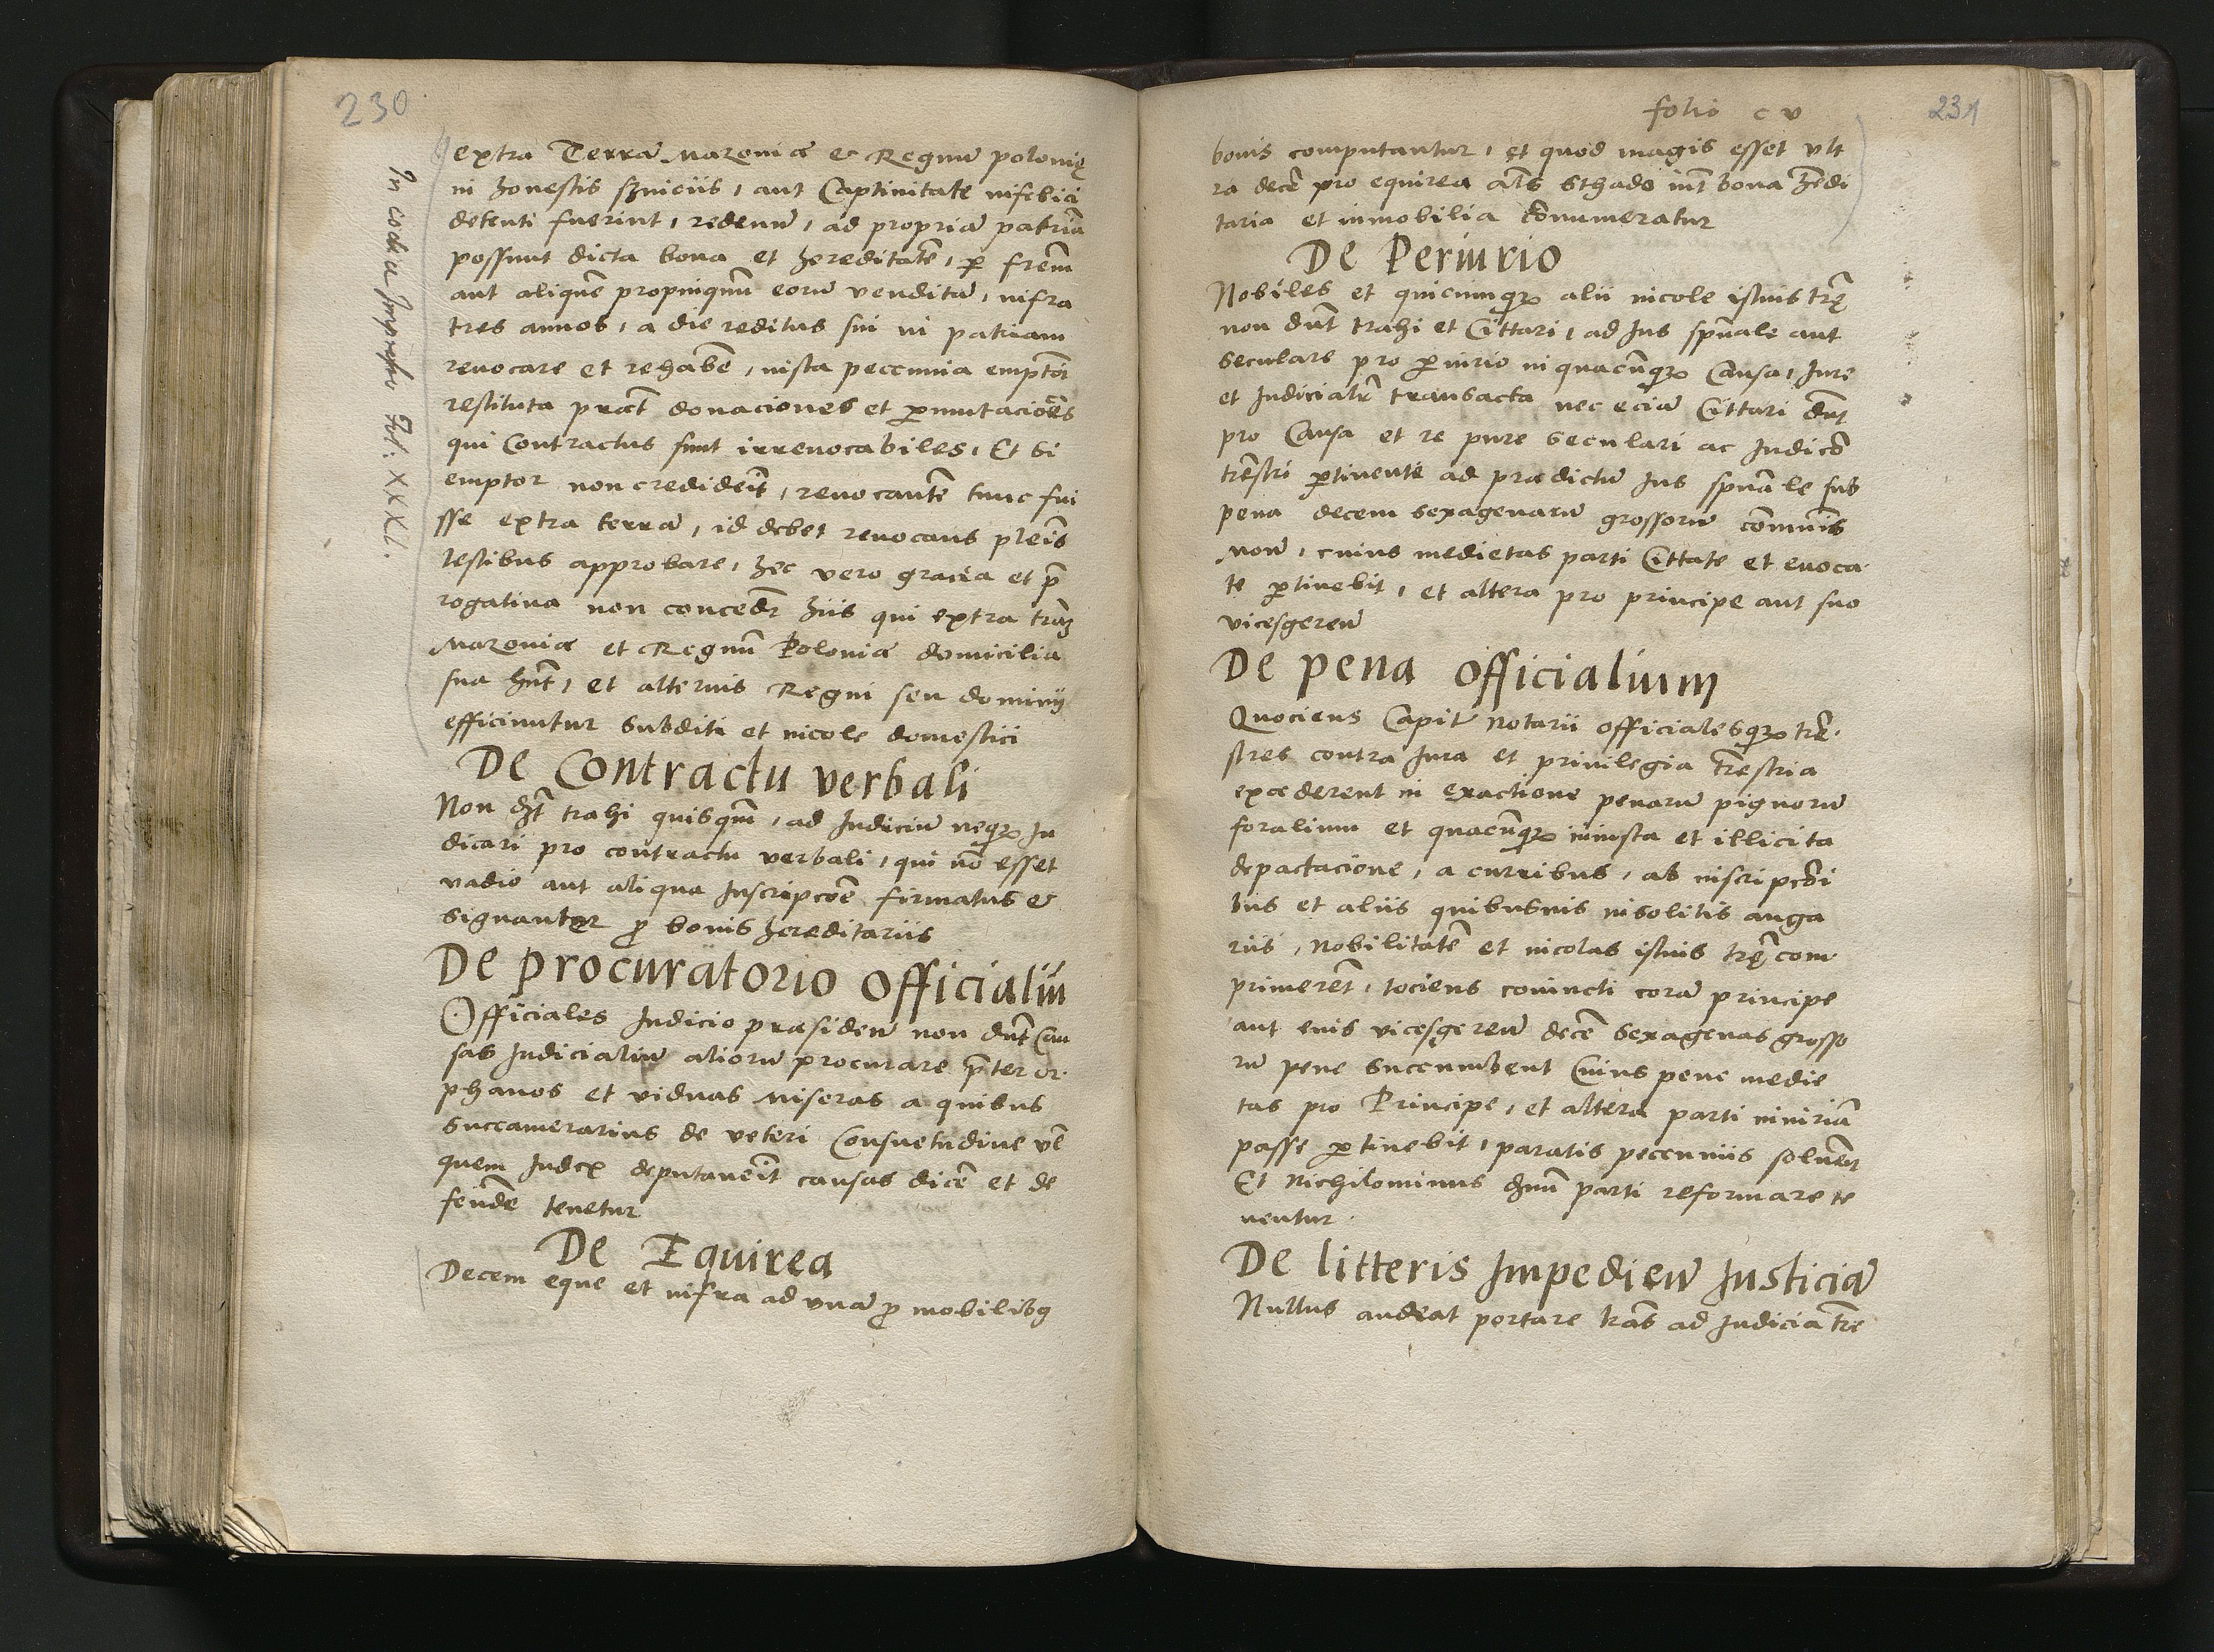 230
In codice Impresso Fol: XXXI.
extra Terrã Mazoviæ et Regnũ polonię
in honestis sviciis, aut Captivitate
detenti fuerint, redeun̄, ad propriã patriã
possunt dicta bona et hereditatẽ, p frẽm
aut aliquẽ propinquũ eorũ venditã, infra
tres annos, a die reditus sui in patriam
revocare et rehabẽ, iusta peccunia emptōr
restituta præt donaciones et pmutaciões
qui Contractus sunt irrevocabiles, Et si
emptor non credideīt, revocantẽ tunc fui
sse extra terrã, id debet revocans pleīs
testibus approbare, hec vero gracia et p̃
rogativa non concedr̃ hiis qui extra trãz
Mazoviæ et Regnũ Poloniæ domicilia
sua hñt, et alterius Regni seu dominij
efficiuntur subditi et incole domestici
De Contractu verbali
Non dz̃t trahi quisqm̃, ad Iudiciũ neqz Iu
dicari pro contractu verbali, qui nõ esset
vadio aut aliqua Inscripcõe firmatus et
signanter p bonis hereditariis
De procuratorio officialiũ
Officiales Iudicio præsiden̄ non dñt Cau
sas Iudicialiũ aliorũ procurare p̃ter or.
phanos et viduas miseras a quibus
succamerarius de veteri Consuetudine vẽ
quem Iudex deputaveīt causas dicẽ et de
fendẽ tenetur
De Equirea
Decem eque et infra ad unã p mobilibz
folio c v
231
bonis computantur, et quod magis esset vlt
ra decẽ pro equirea als̃ sthado int̃ bona hr̃edi
taria et inmobilia cõnumeratur
De Periurio
Nobiles et quicunqz alii incole istius tr̃ę
non dñt trahi et Cittari, ad Ius spũale aut
seculare pro piurio in quacũqz Causa, Iure
et Iudicialr̃ transacta nec eciã Cittari dñt
pro Causa et re pure seculari ac Iudicõ
tr̃estri ptinente ad prædictũ Ius spũale sub
pena decem sexagenarũ grossorũ cõmunis
mon̄, cuius medietas parti Cittate et evoca.
te ptinebit, et altera pro principe aut suo
vicesgeren̄
De pena officialium
Quociens Capit̃ Notarii officialesqz tr̃e.
stres contra Iura et privilegia tr̃estria
excederent in exactione penarũ pignorũ
foralium et quacũqz iniusta et illicita
depactacione, a curribus, ab inscripcõi
bus et aliis quibusvis insolitis anga
riis, Nobilitatẽ et incolas istius tr̃ę com.
primerẽt, tociens convincti corã principe
aut eius vicesgeren̄ decẽ sexagenas grosso
rũ pene succumbent Cuius pene medie
tas pro Principe, et altera parti iniuriã
passe ptinebit, paratis peccuniis solvẽt
Et Nichilominus dñũ parti reformare te
nentur.
De litteris Impedien̄ Iusticiã
Nullus audeat portare lr̃as ad Iudicia tr̃e